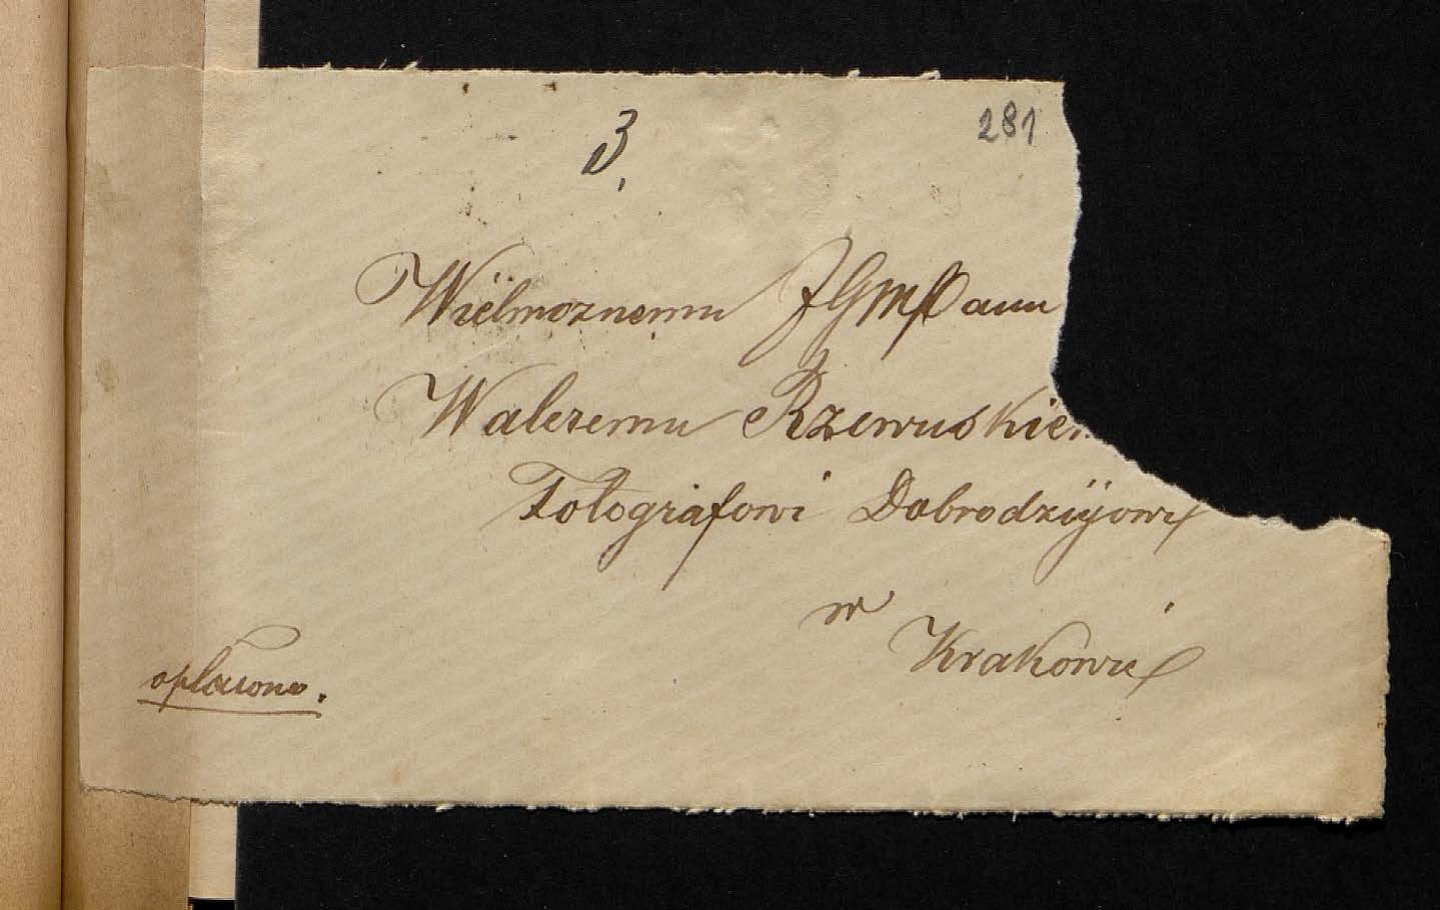 281
3.
Wielmoznemu JGMPanu
Waleremu Rzewuskiem
Fotografowi Dobrodziyowi
w Krakowie
opłacono.